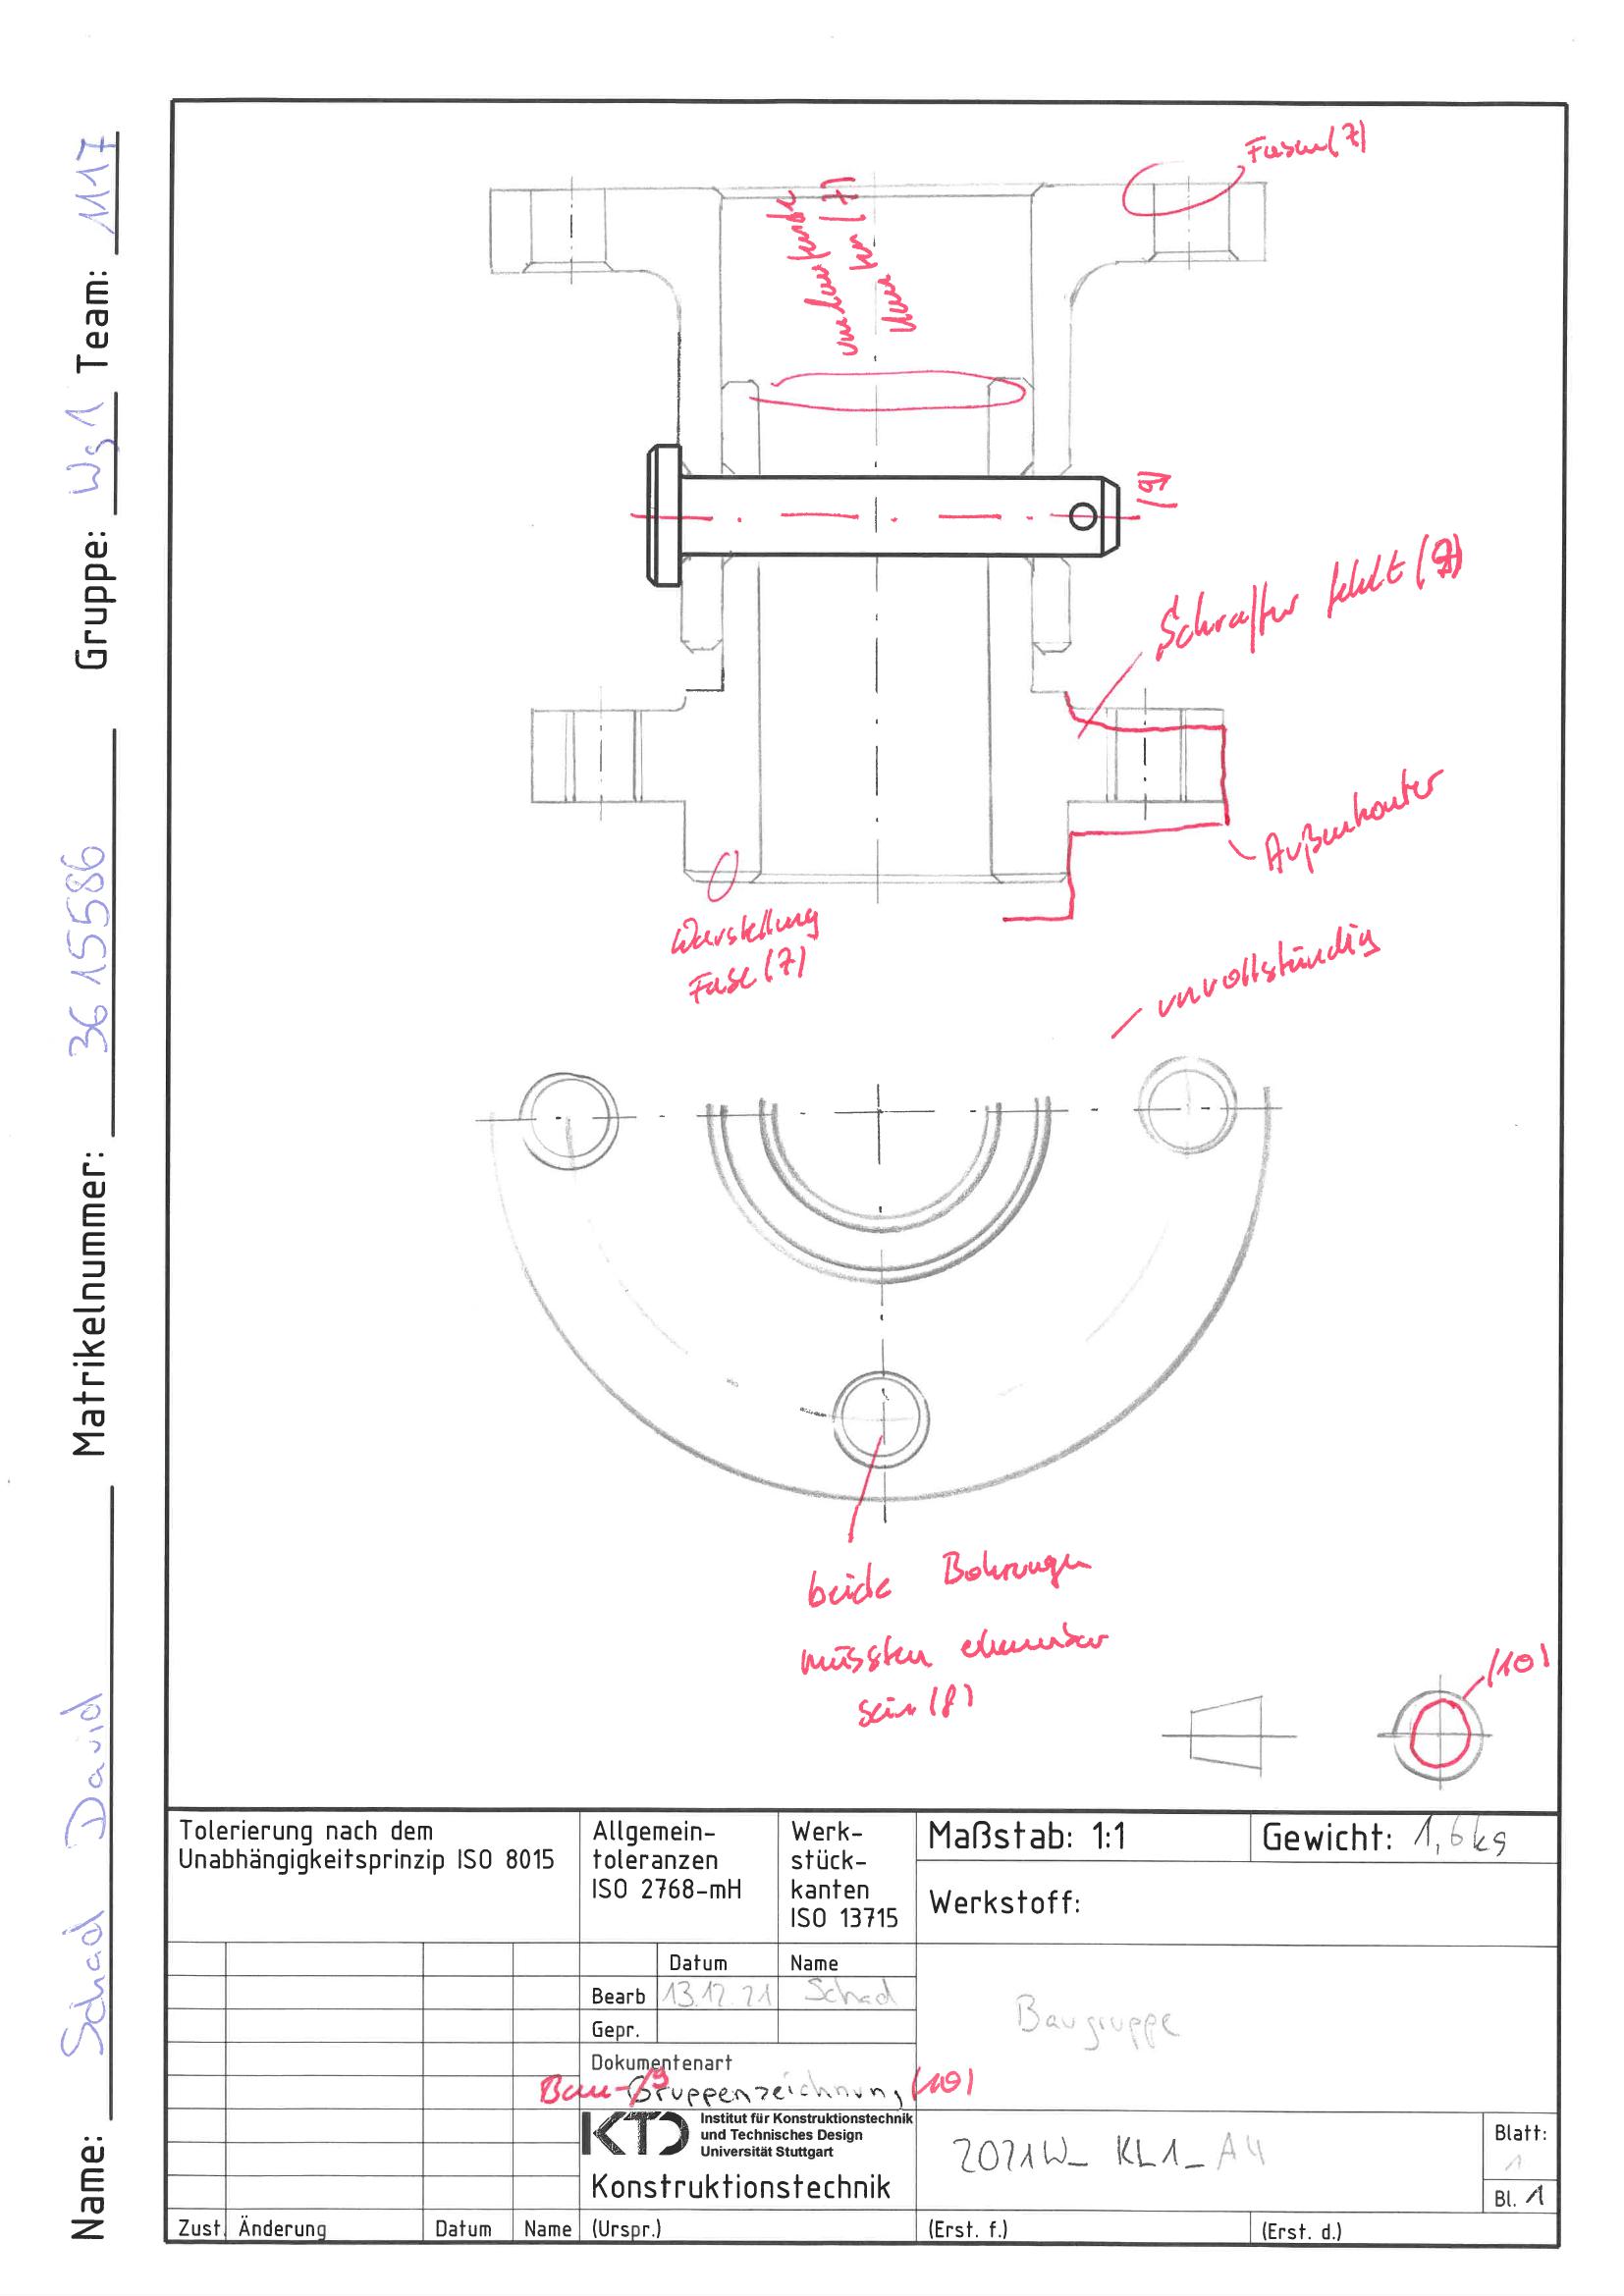 Name: Schad David Matrikelnummer: 3615586 Gruppe: Wg1 Team: M17
Fasen (7)
umlaufende
(7)
(9)
Schraffur fehlt (7)
Außenkontur
Darstellung
Fase (7)
unvollständig
beide Bohrungen
müssten erkennbar
sein (8)
(10)
Tolerierung nach dem
Unabhängigkeitsprinzip ISO 8015
Allgemein-
toleranzen
ISO 2768-mH
Werk-
stück-
kanten
ISO 13715
Maßstab: 1:1
Gewicht: 1,6kg
Werkstoff:
Datum Name
Bearb 13.12.21 Schad
Gepr.
Baugruppe
Dokumentenart
Bau-/Gruppenzeichnung (10)
KTD
Institut für Konstruktionstechnik
und Technisches Design
Universität Stuttgart
Konstruktionstechnik
2021W_KL1_A4
Blatt:
1
Bl. 1
Zust. Änderung Datum Name (Urspr.) (Erst. f.) (Erst. d.)